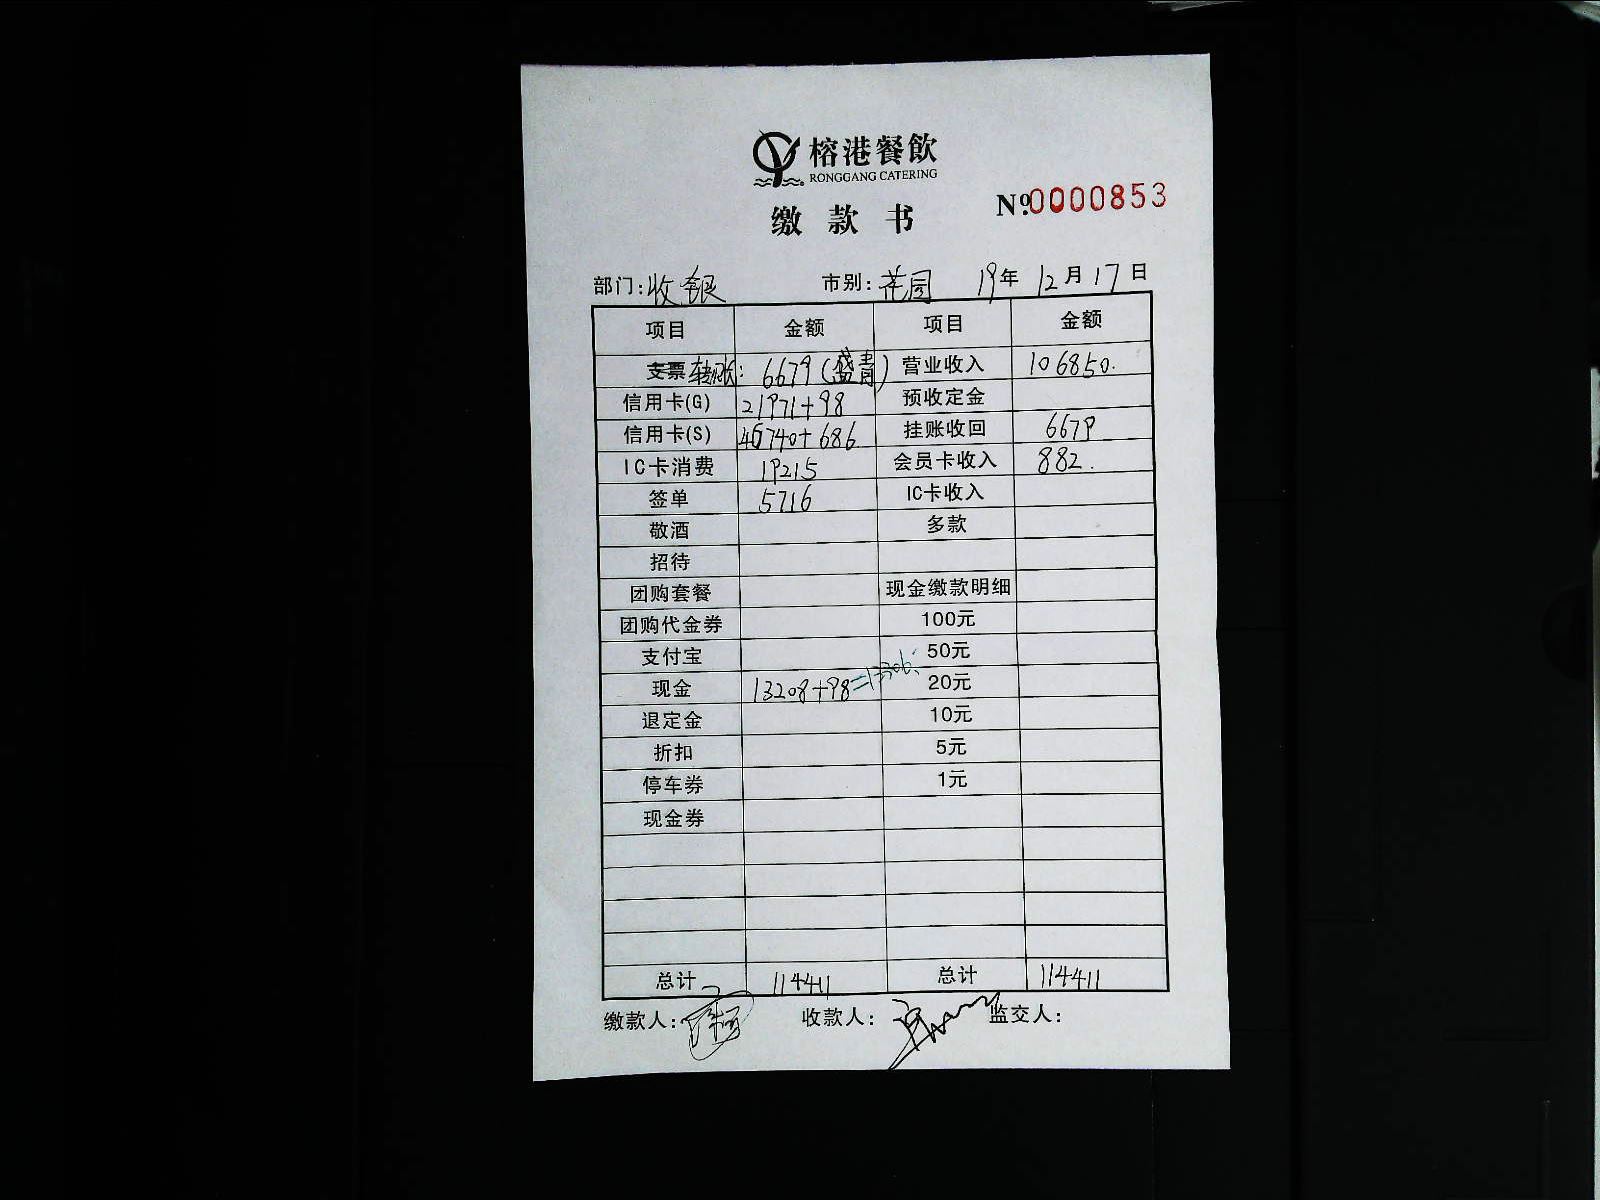 榕港餐飲
RONGGANG CATERING
缴款书
Nº.0000853
部门:收银 市别:花园 19年12月17日
项目 金额 项目 金额
支票 转账: 6679(盛青) 营业收入 106850.
信用卡(G) 21971+98 预收定金
信用卡(S) 46740+686 挂账收回 6679
IC卡消费 19215 会员卡收入 882.
签单 5716 IC卡收入
敬酒 多款
招待
团购套餐 现金缴款明细
团购代金券 100元
支付宝 50元
现金 13208+98=13306. 20元
退定金 10元
折扣 5元
停车券 1元
现金券
总计 114411 总计 114411
缴款人: 收款人: 监交人: